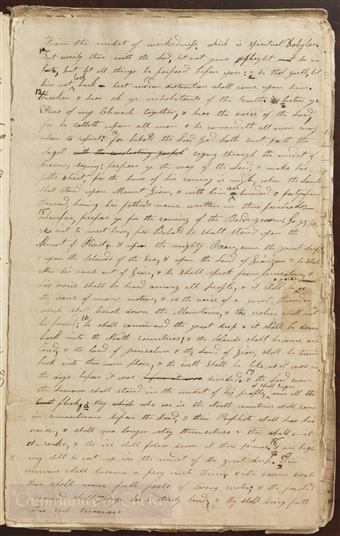 from the midst of wickedness, which is spiritual Babylon
but verily thus saith the Lord, let not your flight be in
haste, but let all things be prepared before you: & he that goeth, let
him not look back lest sudden destruction shall come upon him.
Hearken & hear oh ye inhabitants of the Earth listen ye
Elders of my Church together, & hear the voice of the Lord,
for he calleth upon all men & he commandeth all men every
where to repent: for behold the Lord God hath sent forth the
Angel crying through the midst of
Heaven, saying: prepare ye the way of the Lord, & make his
paths strait for the hour of his coming is nigh, when the Lamb
shall stand upon Mount Zion, & with him a hundred & forty four
thousand having his father's name written in their foreheads:
wherefore, prepare ye for the coming of the Bridegroom: Go ye, go
ye out to meet him, for Behold he shall stand upon the
Mount of Olivet, & upon the mighty Ocean, even the great deep,
& upon the Islands of the Sea, & upon the Land of Zion; & he shall
utter his voice out of Zion, & he shall speak from Jerusalem, &
his voice shall be heard among all people, & it shall be as
the voice of many waters, & as the voice of a great thunder,
which shall break down the Mountains, & the vallies shall not
be found: he shall command the great deep & it shall be driven
back into the North countries, & the Islands shall become one
land, & the land of Jerusalem & the land of Zion, shall be turned
back into their own place, & the earth shall be like as it was in
the days before it was divided; & the Lord even
the Saviour shall stand in the midst of his people, & shall reign over all
flesh, & they which are in the North countries shall come
in remembrance before the Lord, & their Prophets shall hear his
voice, & shall no longer stay themselves & they shall smite
the rocks, & the ice shall flow down at their presence & an high
way shall be cast up in the midst of the great deep. Their
enemies shall become a prey unto them; & in the barren deserts
there shall come forth pools of living water; & the parched
ground shall no longer be a thirsty land; & they shall bring forth
Community of Christ